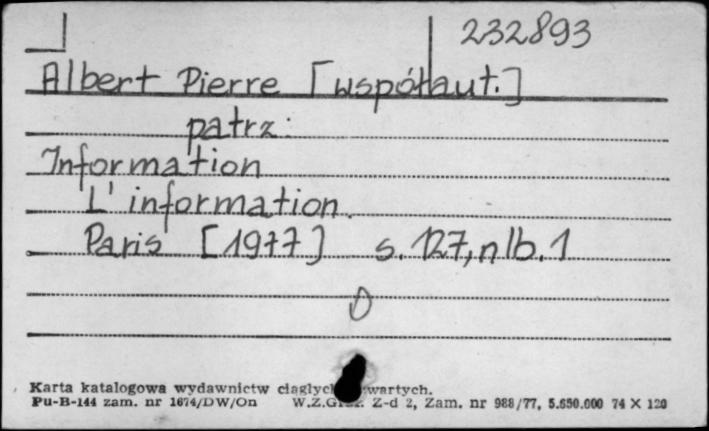 232893
Albert Pierre [współaut.]
patrz:
Information
L'information.
Paris [1977] s. 127, nlb. 1
Karta katalogowa wydawnictw ciągłych wartych.
Pu-B-144 zam. nr 1674/DW/On W.Z.Graf. Z-d 2, Zam. nr 988/77, 5.650.000 74 X 120